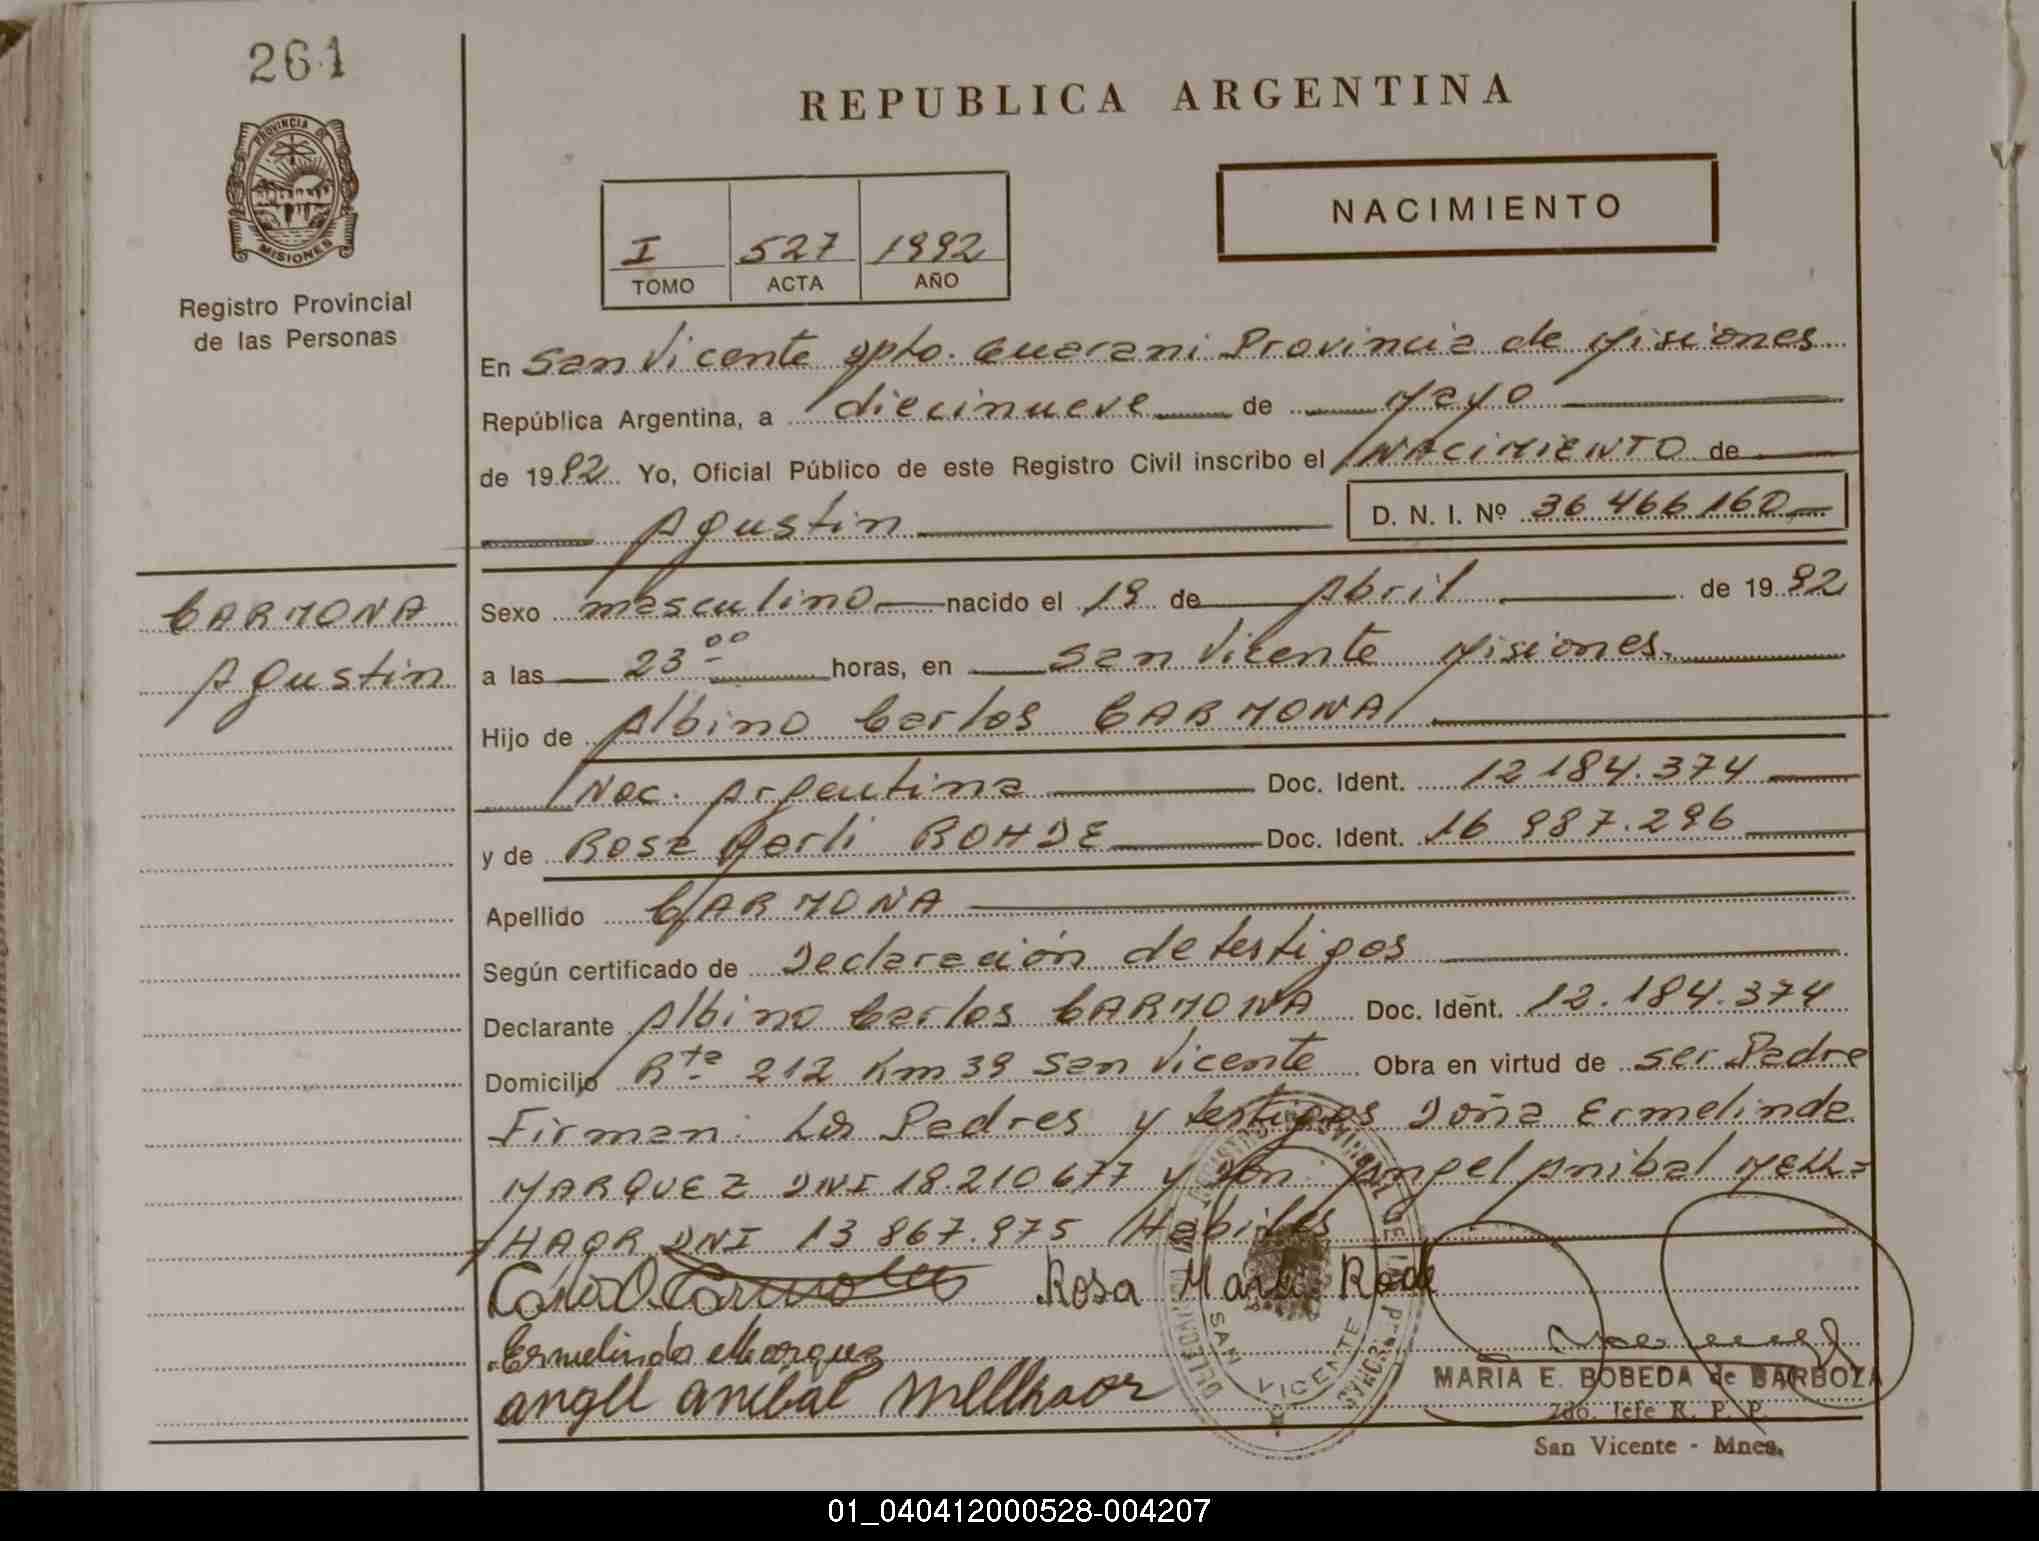 261
PROVINCIA DE
MISIONES
Registro Provincial
de las Personas
REPUBLICA ARGENTINA
I 527 1992
TOMO ACTA AÑO
NACIMIENTO
En San Vicente Dpto. Guarani Provincia de Misiones
República Argentina, a diecinueve de Mayo
de 1992 Yo, Oficial Público de este Registro Civil inscribo el NACIMIENTO de
Agustin D. N. I. Nº 36 466 160
CARMONA
Agustin
Sexo masculino nacido el 19 de Abril de 1992
a las 23 00 horas, en San Vicente Misiones.
Hijo de Albino Carlos CARMONA
Nac. Argentina Doc. Ident. 12 184.374
y de Rosa Marli ROHDE Doc. Ident. 16 987.296
Apellido CARMONA
Según certificado de Declaración de testigos
Declarante Albino Carlos CARMONA Doc. Ident. 12.184.374
Domicilio Rta 212 Km 39 San Vicente Obra en virtud de ser Padre
Firman: Los Padres y testigos Doña Ermelinda
MARQUEZ DNI 18.210677 y Don: Angel Anibal MELL=
HAOR DNI 13 867.975 Habiles
Carmona Rosa Marli Rode
Ermelinda Marquez
angel anibal Mellhaor
SAN VICENTE
MARIA E. BOBEDA de BARBOZA
2do. Jefe R. P. P.
San Vicente - Mnes.
01_040412000528-004207